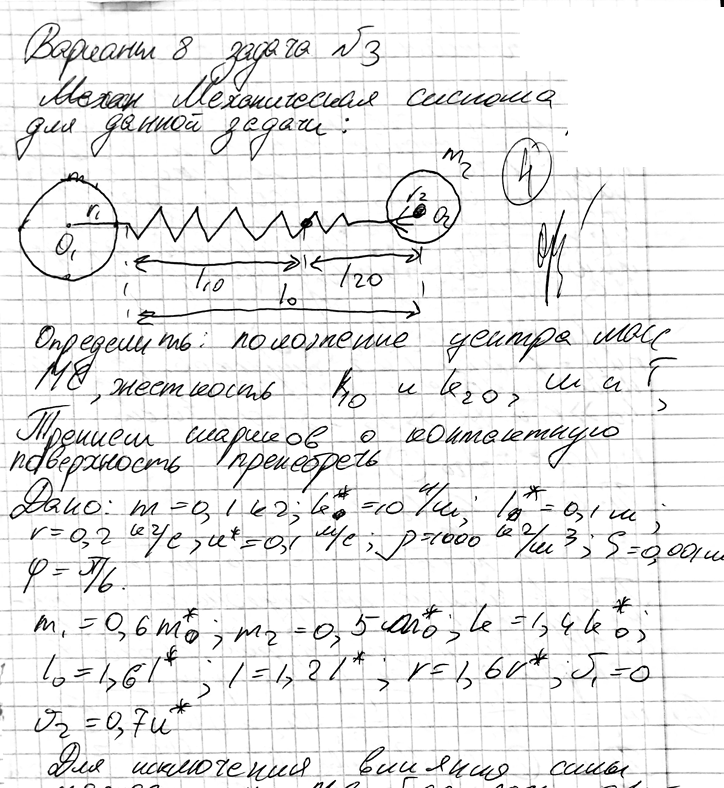 Вариант 8 задача №3
Механ Механическая система
для данной задачи:
m₂
4
m₁
r₁
r₂
O₁
O₂
l₁₀
l₂₀
l₀
Определить: положение центра масс
МС, жесткость k₁₀ и k₂₀, ω и T,
Трением шариков о контактную
поверхность пренебречь
Дано: m = 0,1 кг; k₀* = 10 н/м; l₀* = 0,1 м;
r = 0,2 кг/с, u* = 0,1 м/с; ρ = 1000 кг/м³; S = 0,001 м
φ = π/6.
m₁ = 0,6 m₀*; m₂ = 0,5 m₀*; k = 1,4 k₀*;
l₀ = 1,6 l*; l = 1,2 l*; r = 1,6 r*; υ₁ = 0
υ₂ = 0,7 u*
Для исключения влияния силы